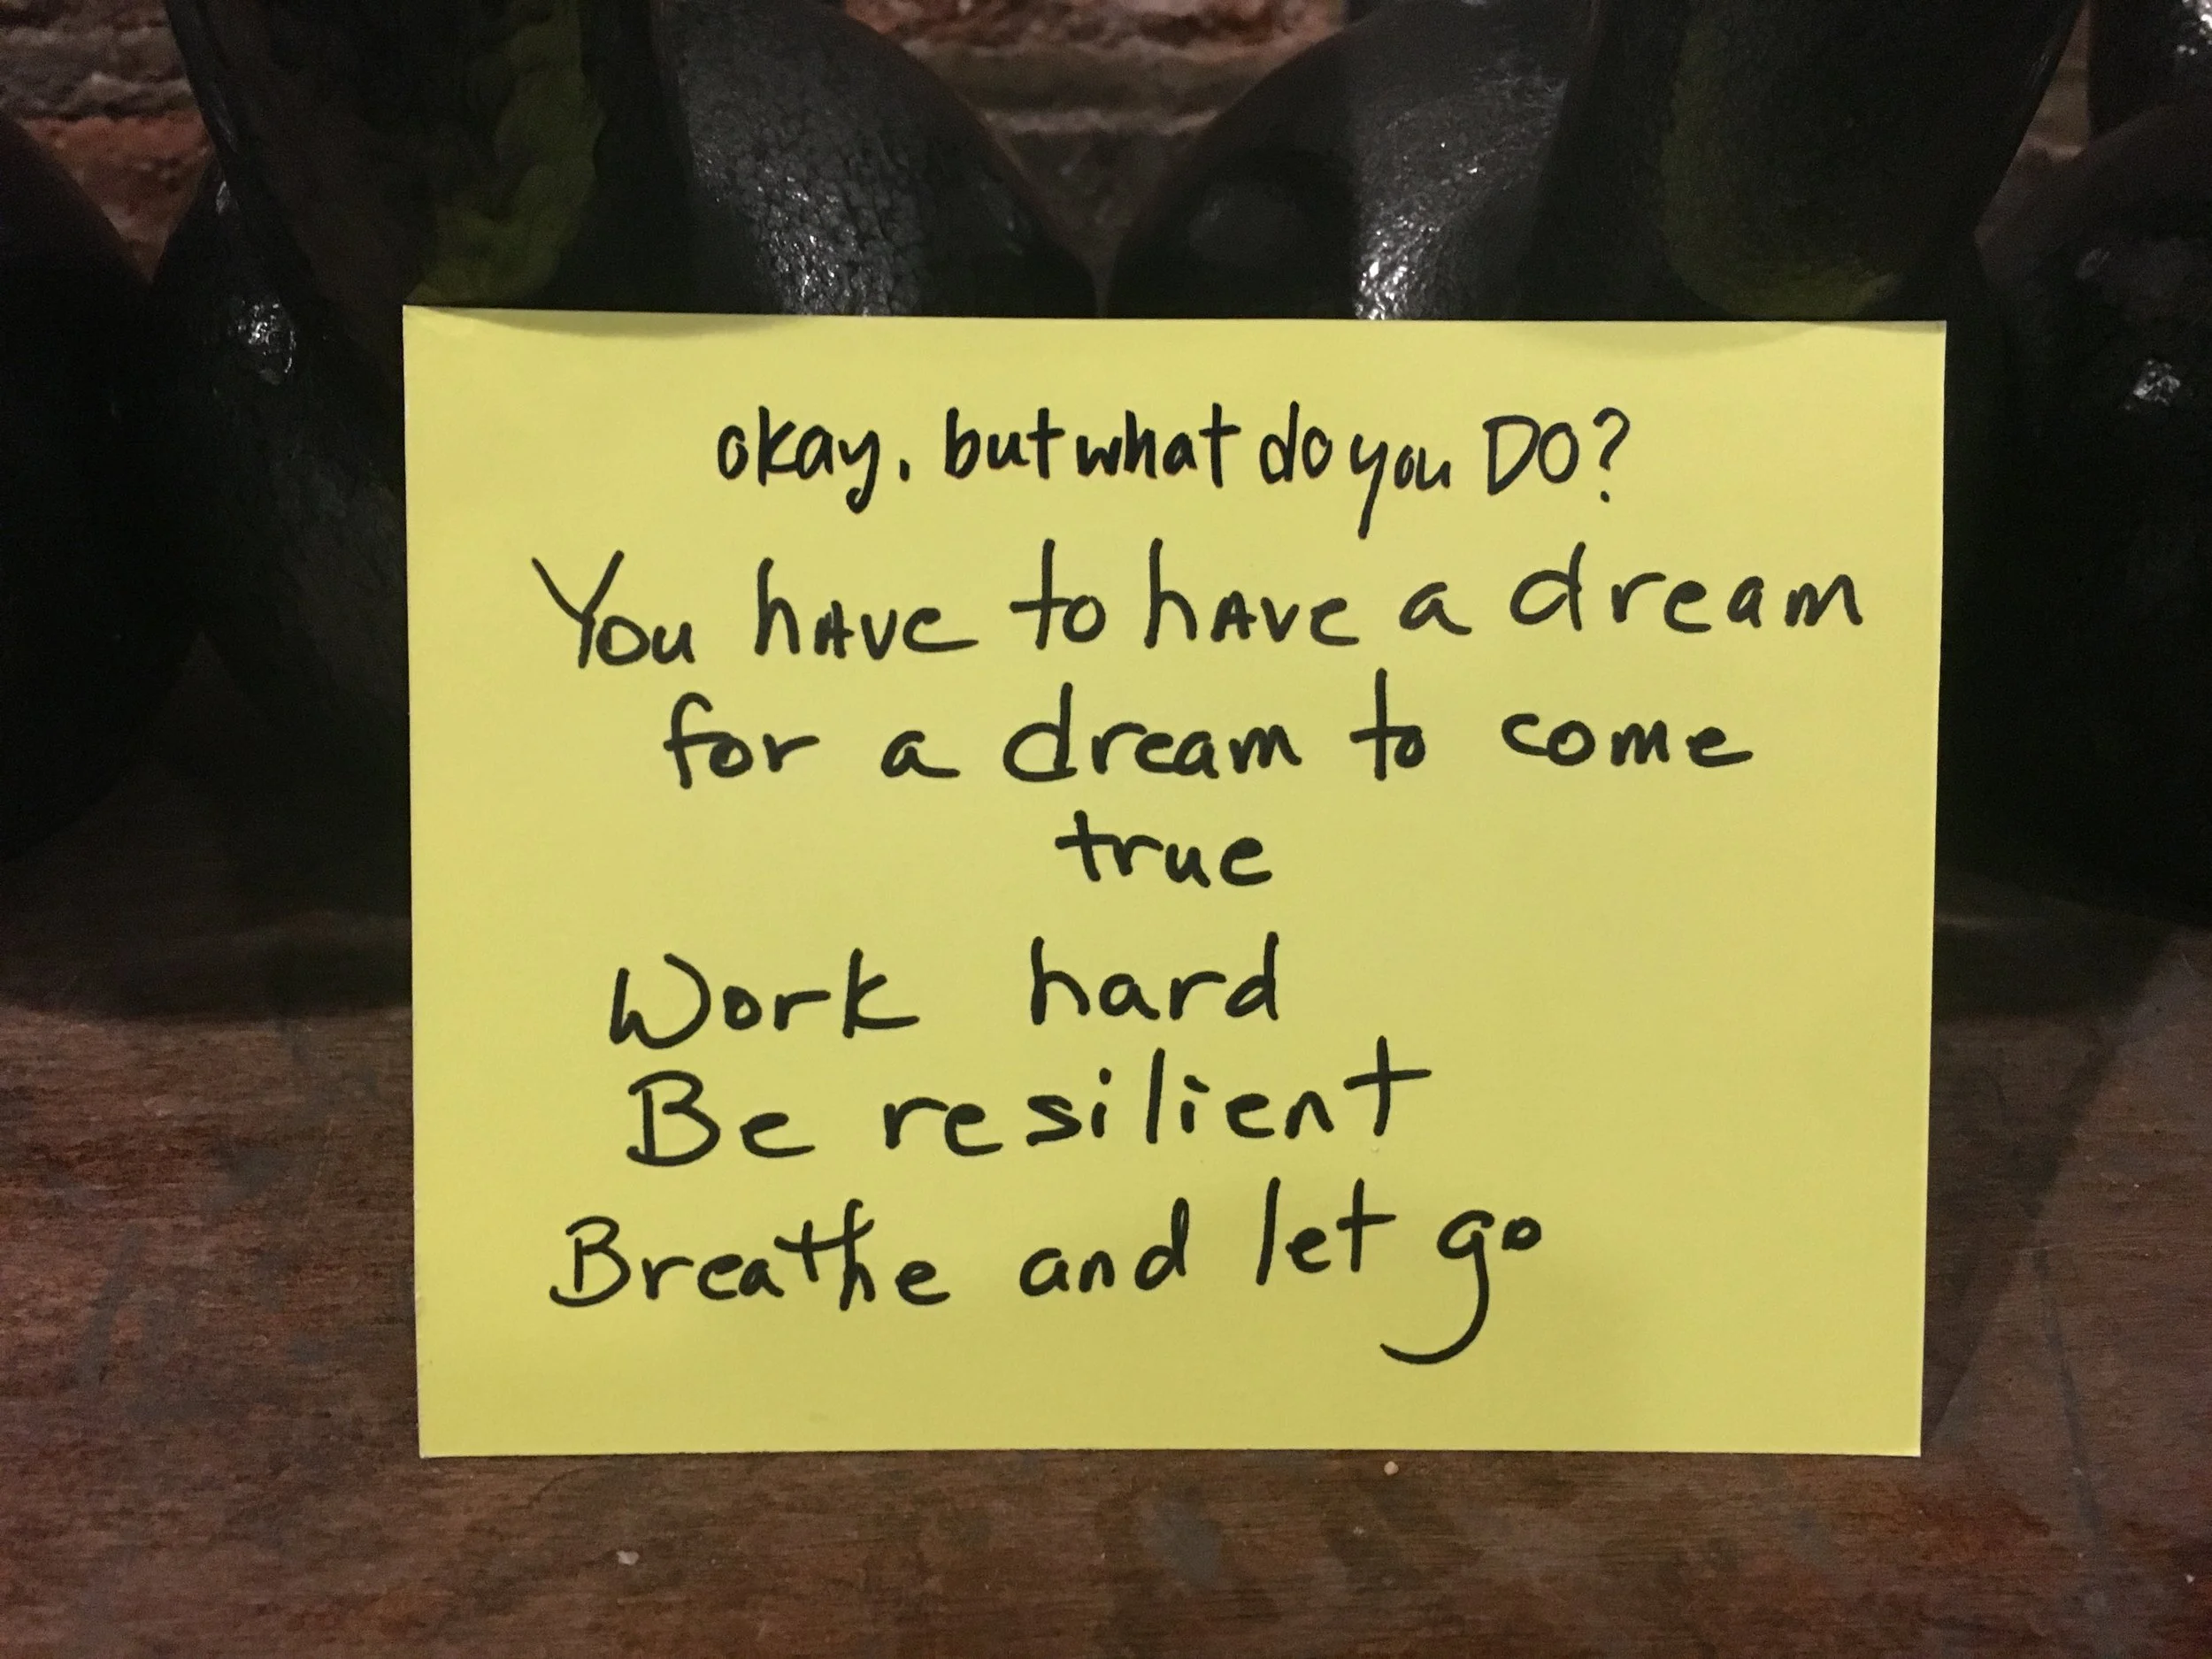 okay. but what do you DO?
You hAVe to hAVe a dream
for a dream to come
true
Work hard
Be resilient
Breathe and let go